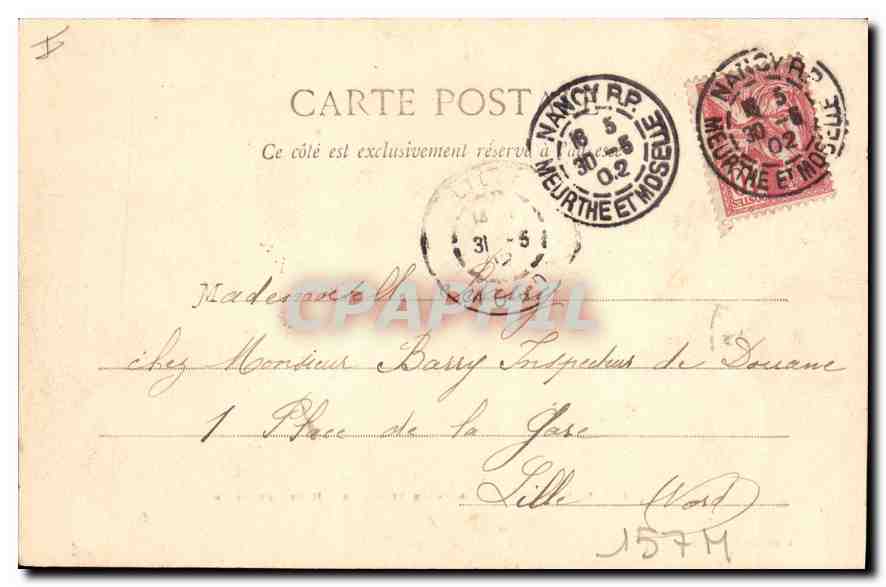 CARTE POST
Ce côté est exclusivement réservé à l'adresse
NANCY R.P.
16 5
30 -5
02
MEURTHE ET MOSELLE
NANCY R.P.
5
30 -5
02
MEURTHE ET MOSELLE
31 -5
CPAPHIL
Mademoiselle
chez Monsieur Barry Inspecteur de Douane
1 Place de la Gare
Lille (Nord)
157M